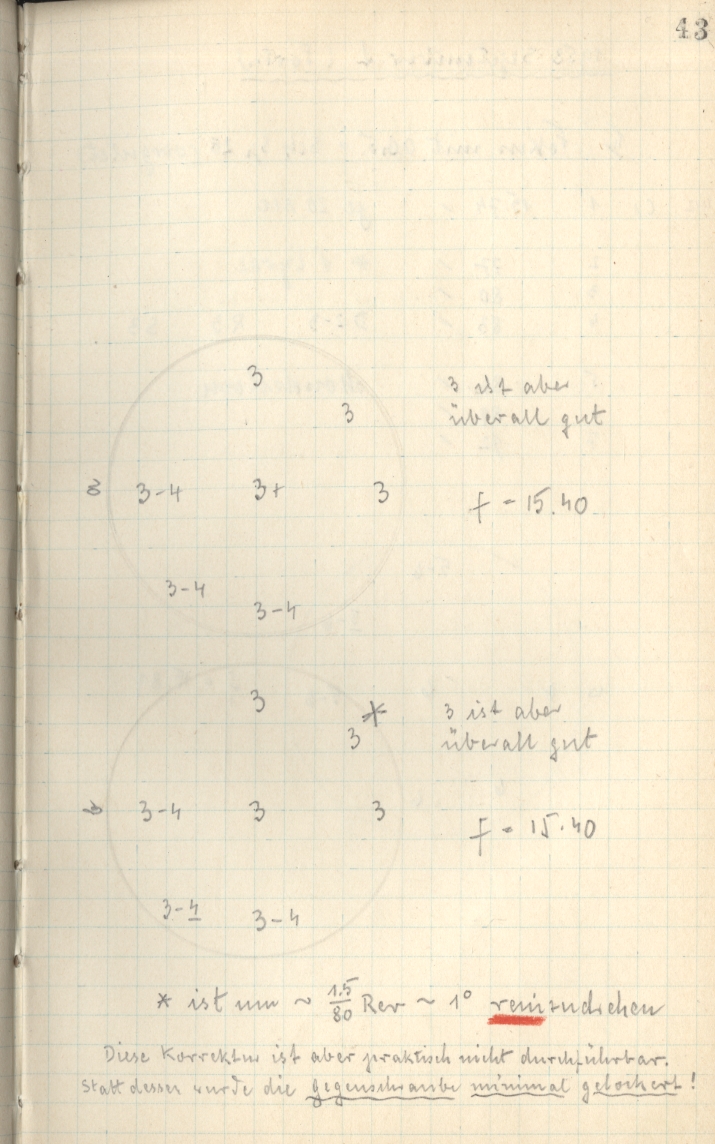 43
3
3 ist aber
3 überall gut
3-4 3+ 3 f = 15.40
3-4
3-4
3
*
3 ist aber
3 überall gut
3-4 3 3
f = 15.40
3-4 3-4
* ist um ~ 1.5/80 Rev ~ 1° reinzudrehen
Diese Korrektur ist aber praktisch nicht durchführbar.
Statt dessen wurde die Gegenschraube minimal gelockert!